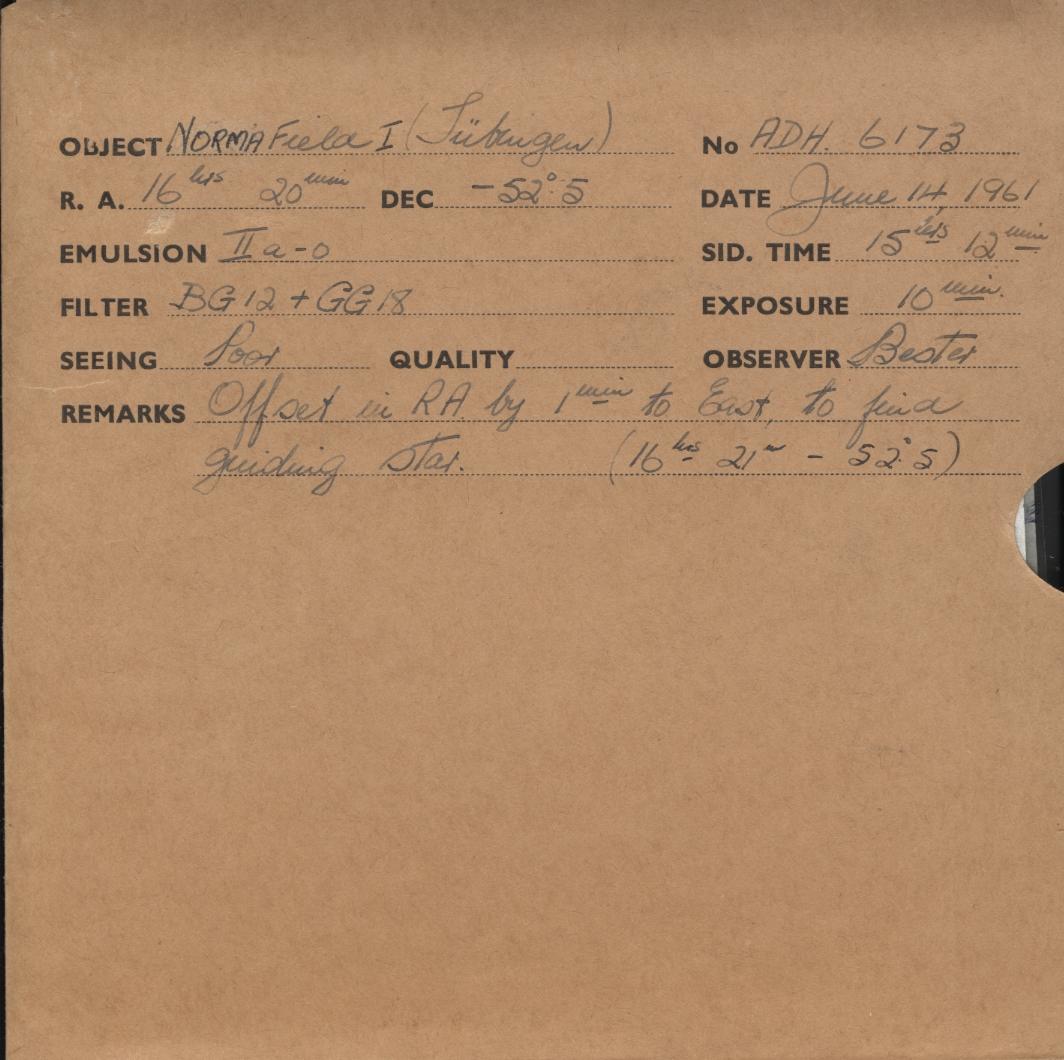 OBJECT NORMA Field I (Tübingen) No ADH. 6173
R. A. 16 hrs 20 min DEC -52°.5 DATE June 14, 1961
EMULSION IIa-o SID. TIME 15 hrs 12 min
FILTER BG12 + GG18 EXPOSURE 10 min.
SEEING Poor QUALITY OBSERVER Bester
REMARKS Offset in RA by 1 min to East, to find
guiding star. (16 hrs 21 m - 52°.5)